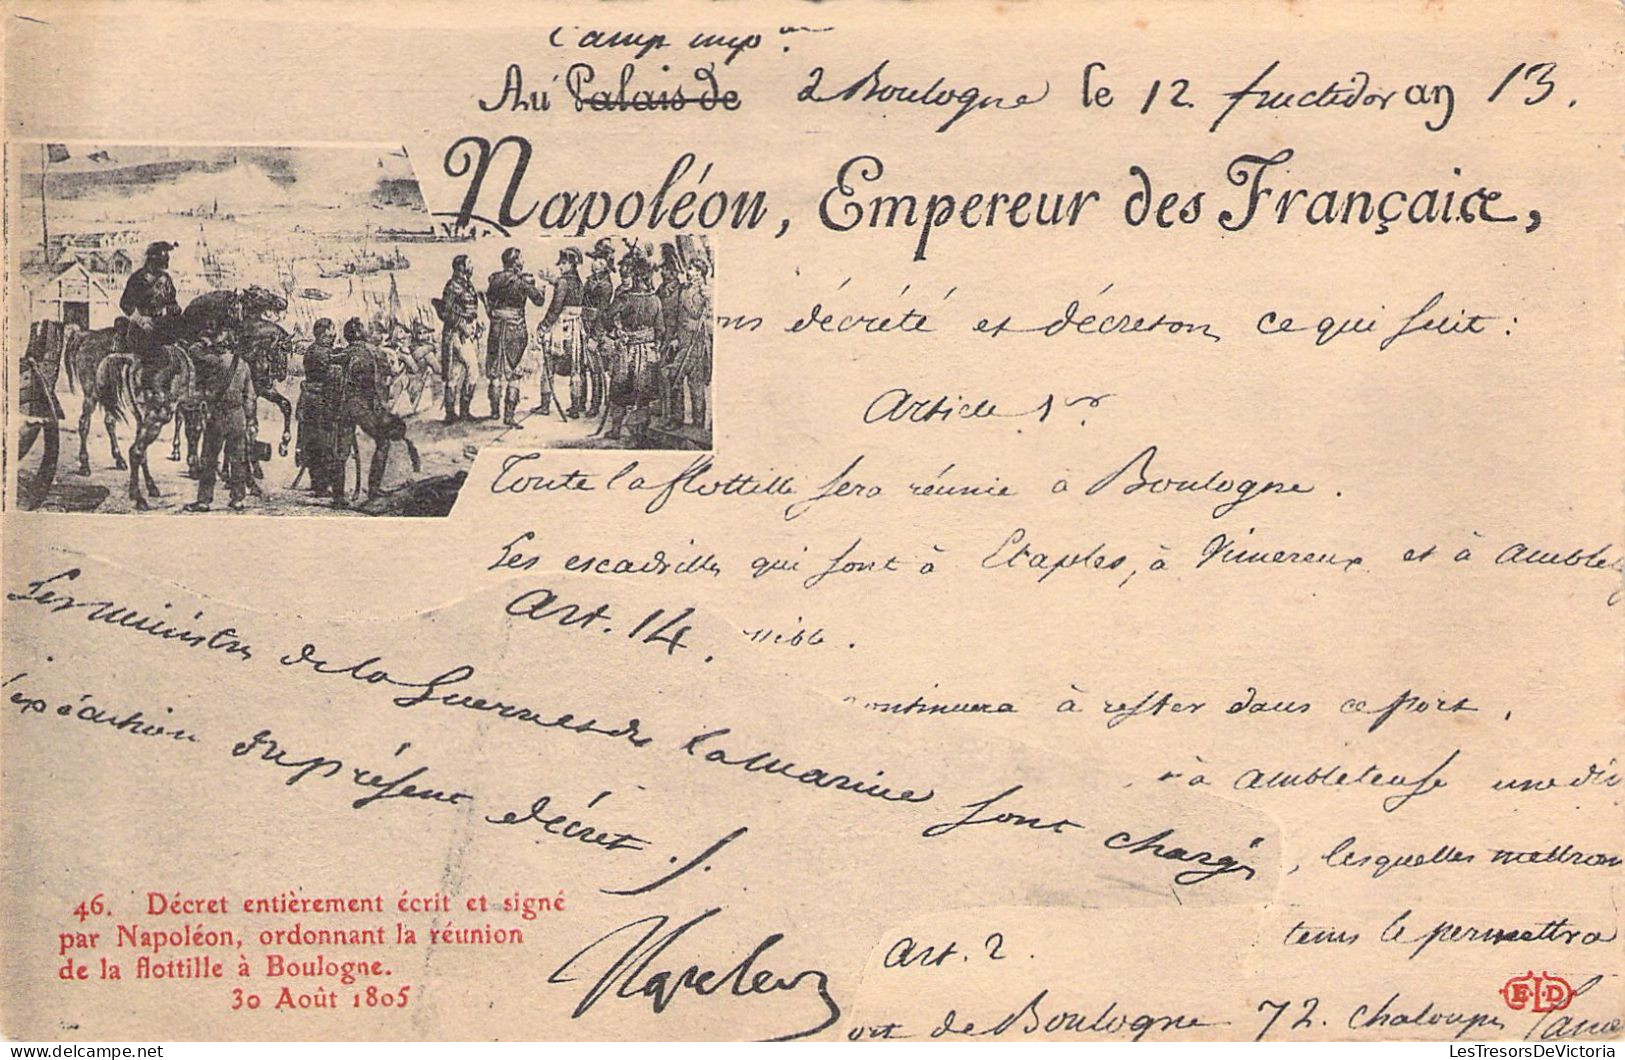 Camp imp.al
Au Palais de à Boulogne le 12. fructidor an 13.
Napoléon, Empereur des Français,
ons décrété et décretons ce qui suit:
Article 1er
Toute la flottille sera réunie à Boulogne.
Les escadrilles qui sont à Etaples, à Vimereux et à Amblet
Art. 14. ssible.
ontinuera à rester dans ce port.
à Ambleteuse une div
Les ministres de la Guerre et de la marine sont chargés, lesquelles mettron
l'exécution du présent décret.
tems le permettra
Napoleon
Art. 2.
ort de Boulogne 72. chaloupes
46. Décret entièrement écrit et signé
par Napoléon, ordonnant la réunion
de la flottille à Boulogne.
30 Août 1805
E.L.D
LesTresorsDeVictoria